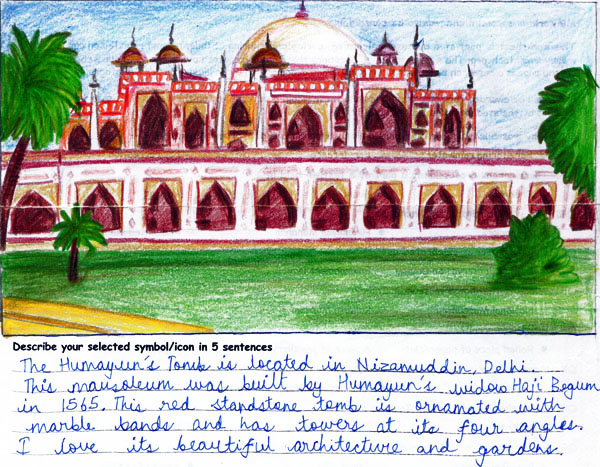 Describe your selected symbol/icon in 5 sentences
The Humayun's Tomb is located in Nizamuddin, Delhi.
This mausoleum was built by Humayun's widow Haji Begum
in 1565. This red standstone tomb is ornamated with
marble bands and has towers at its four angles.
I love its beautiful architecture and gardens.